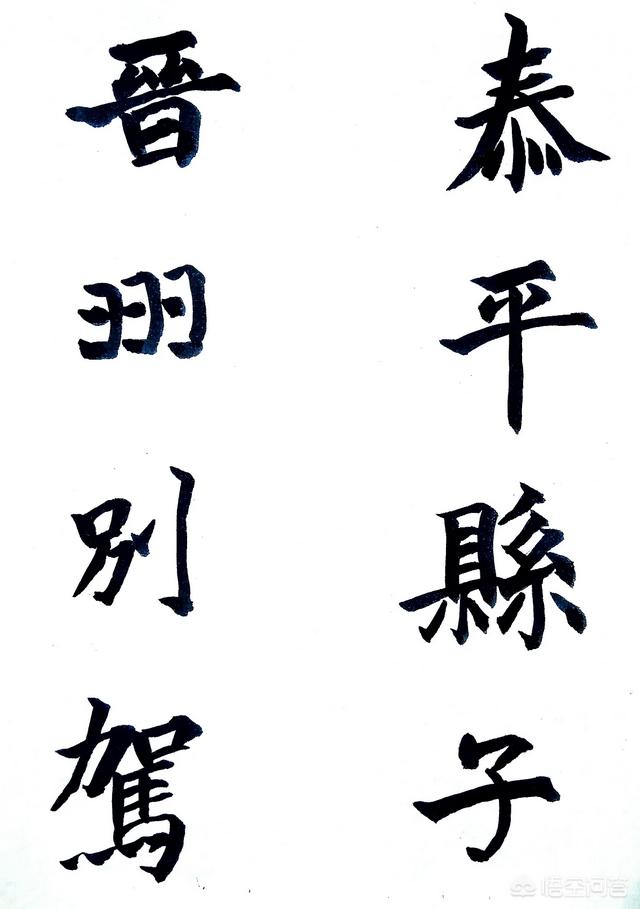 泰平縣子
晉州別駕
悟空问答